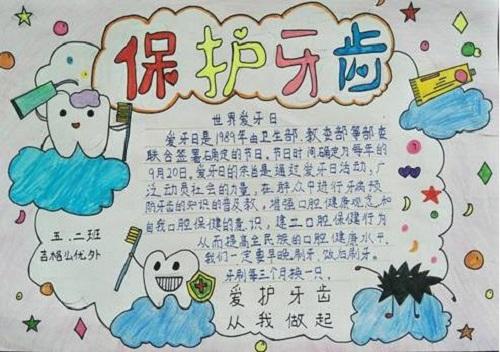 保护牙齿
世界爱牙日
爱牙日是1989年由卫生部、教委部等部委
联合签署确定的节日,节日时间确定为每年的
9月20日,爱牙日的宗旨是通过爱牙日活动,广
泛动员社会的力量,在群众中进行牙病预
防牙齿的知识的普及教,增强口腔健康观念和
自我口腔保健的意识,建立口腔保健行为
从而提高全民族的口腔健康水平,
我们一定要早晚刷牙、饭后刷牙。
牙刷每三个月换一只。
五.二班
吉格么优外
爱护牙齿
从我做起